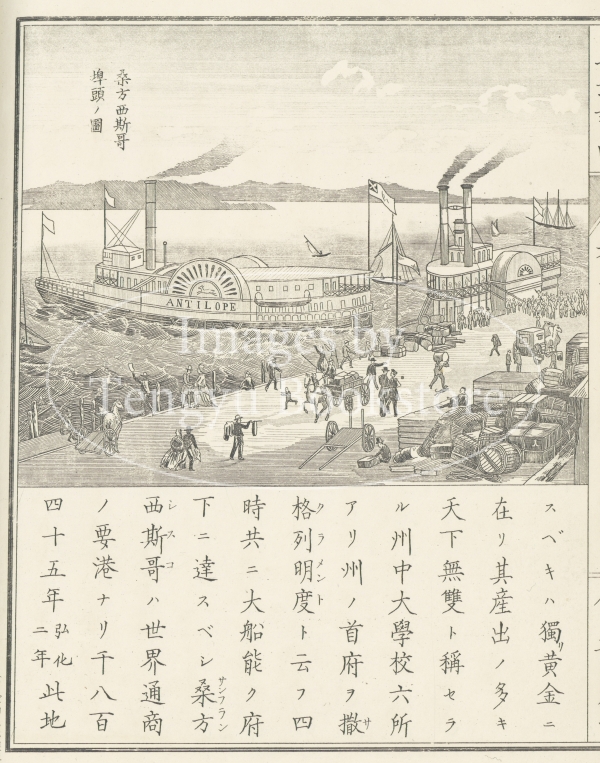 桑方西斯哥
埠頭ノ圖
ANTILOPE
Images by
Tenkyu Bookstore
スベキハ獨リ黄金ニ
在リ其産出ノ多キ
天下無雙ト稱セラ
ル州中大學校六所
アリ州ノ首府ヲ撒サ
格列明度クラメントト云フ四
時共ニ大船能ク府
下ニ達スベシ桑方サンフラン
西斯哥シスコハ世界通商
ノ要港ナリ千八百
四十五年弘化二年此地